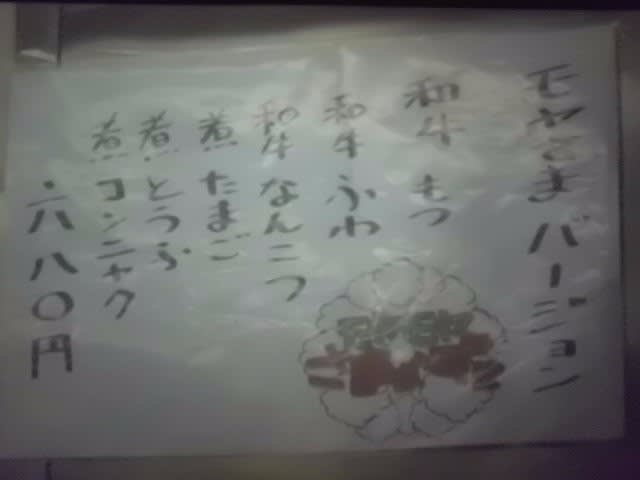 モヤさまバージョン
和牛 もつ
和牛 ふわ
和牛 なんこつ
煮 たまご
煮 とうふ
煮 コンニャク
八八〇円